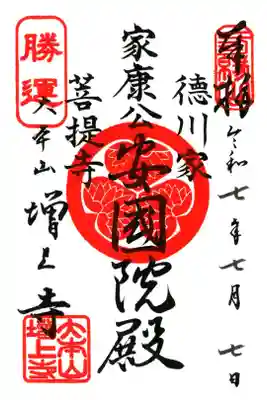 奉拝
令和七年七月七日
徳川家
家康公安國院殿
菩提寺
勝運
大本山増上寺
大本山
増上寺